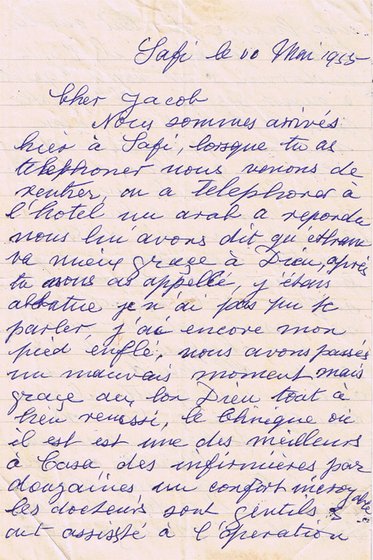 Safi le 00 Mai 1955
Cher Jacob
Nous sommes arrivés
hier à Safi, lorsque tu as
telephoner nous venons de
rentrer, on a telephoner à
l'hotel un arab a repondu
nous lui avons dit qu'
va mieux graçe à Dieu, après
tu nous as appellé, j'étais
abbatue je n'ai pas pu te
parler, j'ai encore mon
pied enflé, nous avons passés
un mauvais moment mais
graçe au bon Dieu tout à
bien reussi, le clinique où
il est est une des meilleurs
à Casa des infirmières par
douzaines un confort incroyable
les docteurs sont gentils
ont assisté à l'operation